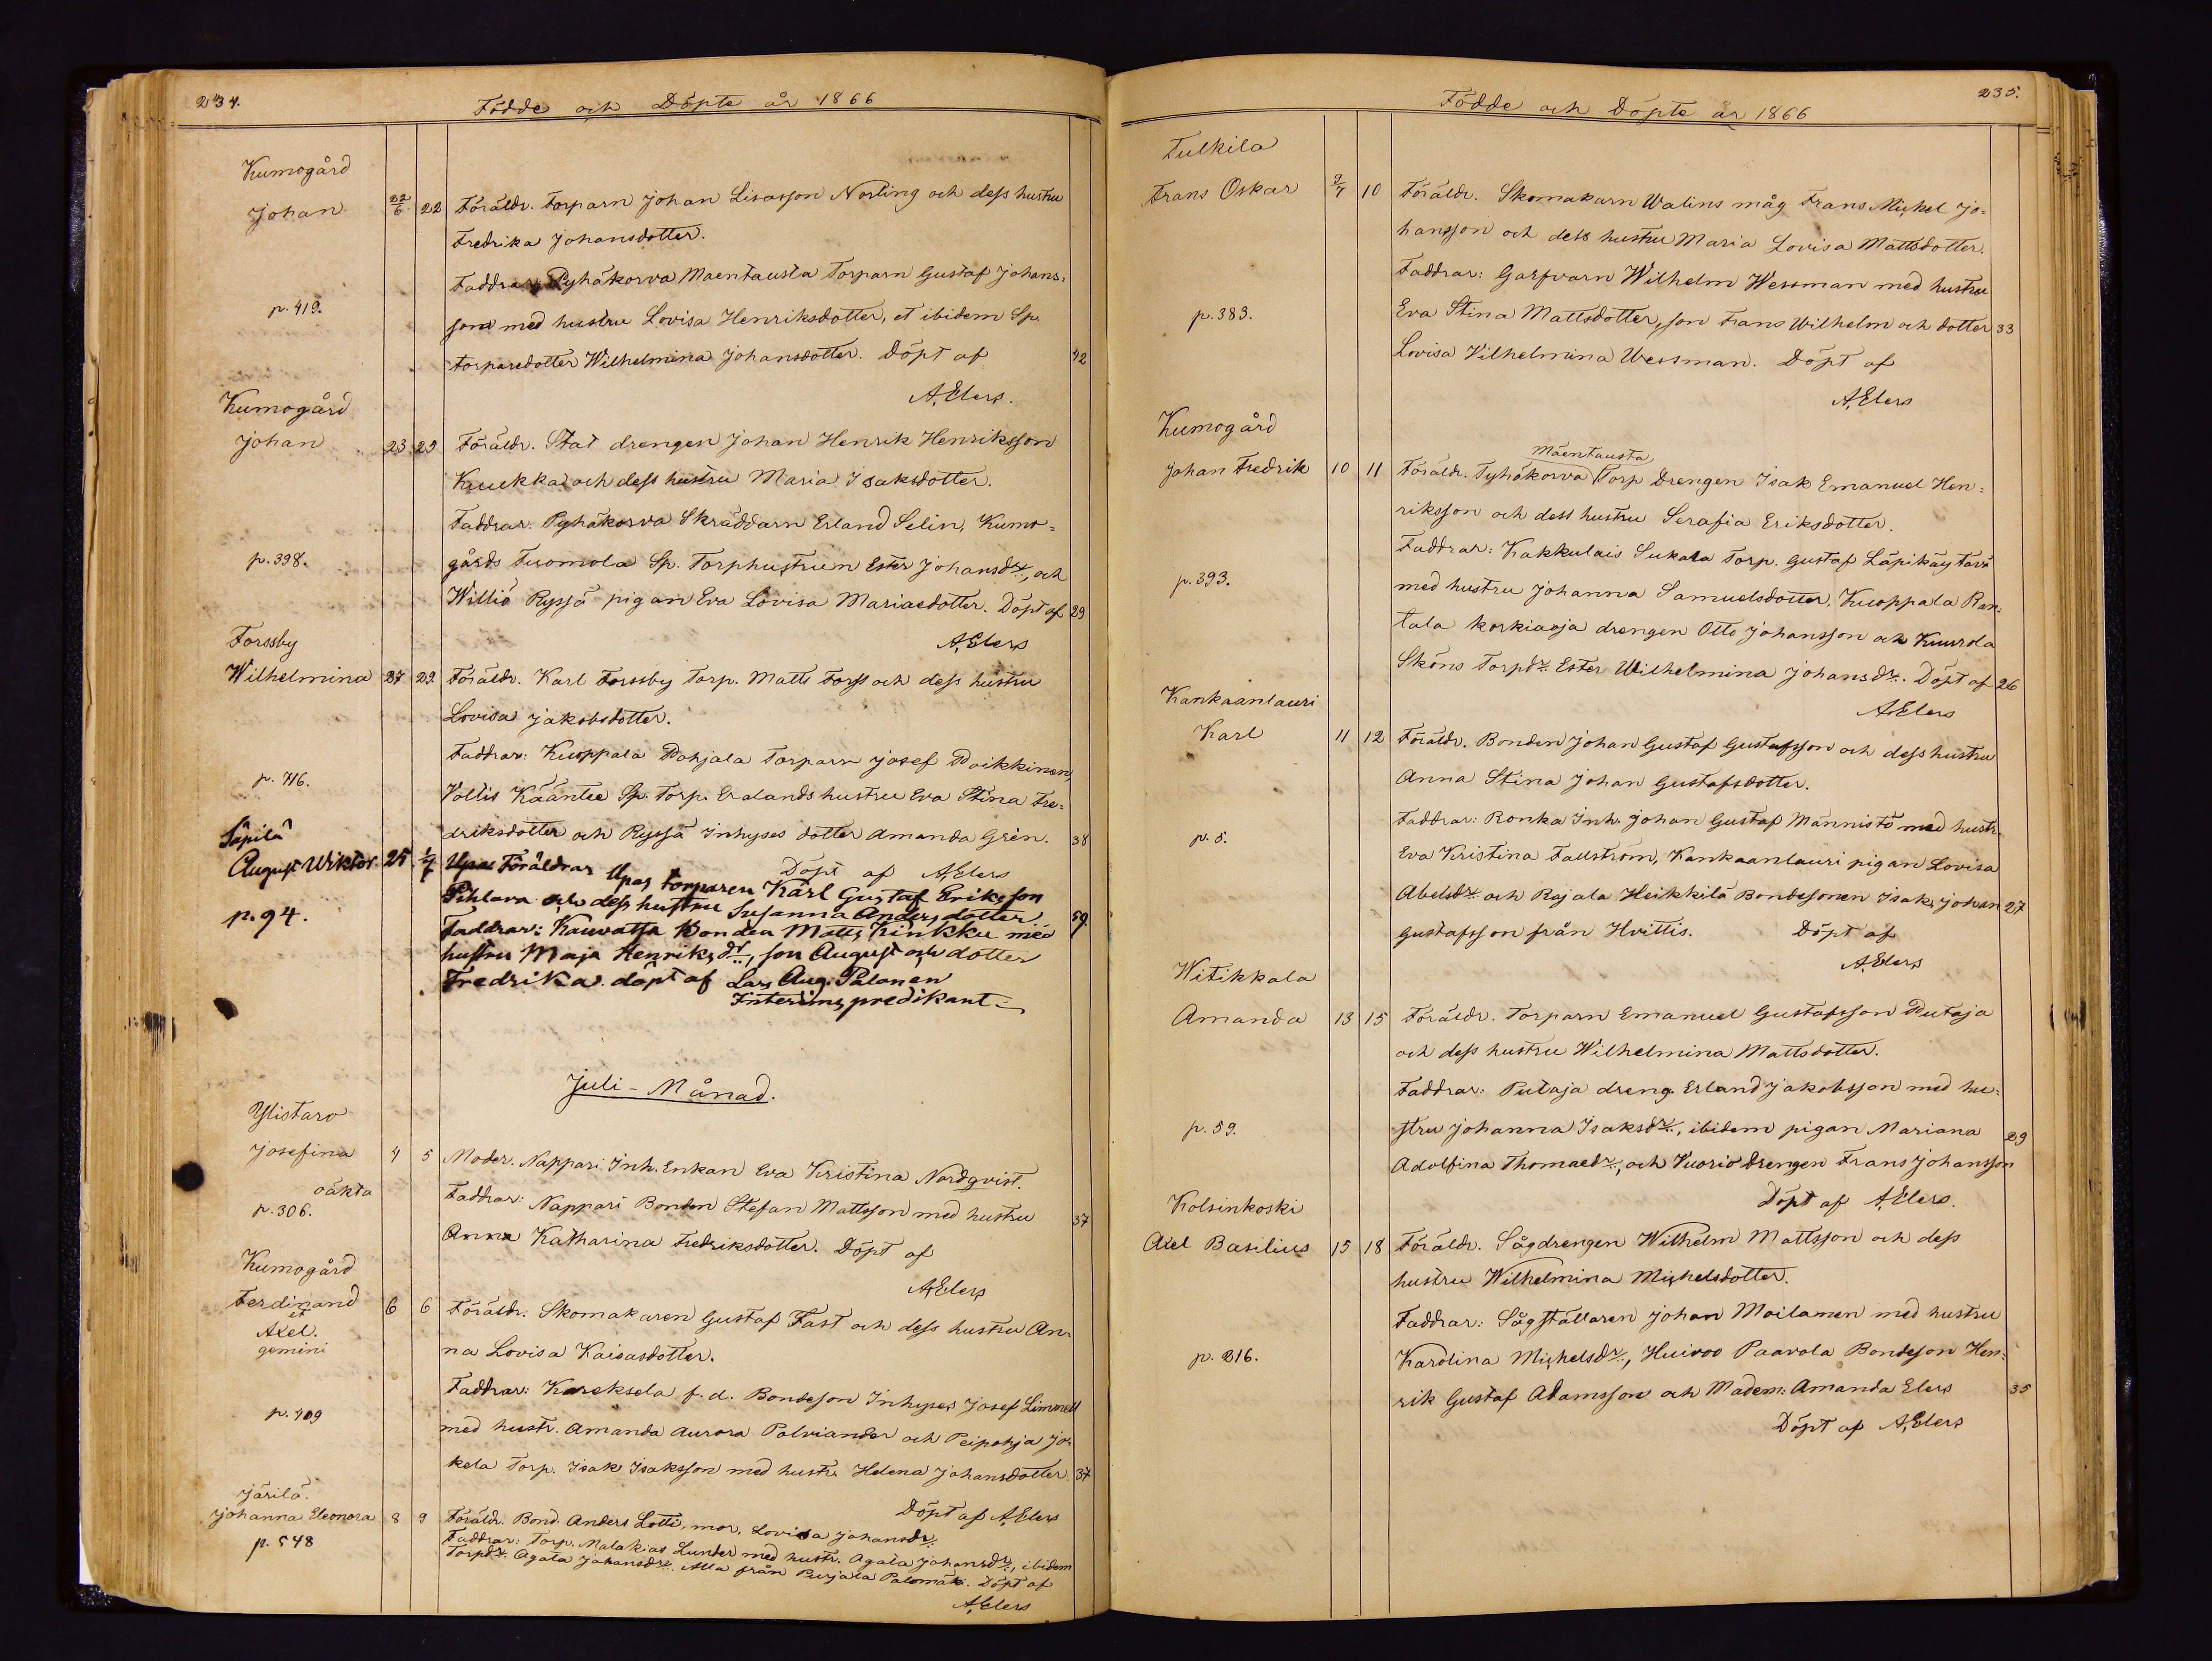 234.
Födde och Döpte år 1866
Kumogård
Johan 22/6 22 Föräldr. Torparn Johan Lisasson Norling och dess hustru
Fredrika Johansdotter.
Faddrar: Pyhäkorva Maentausta Torparn Gustaf Johans=
p. 419. son med hustru Lovisa Henriksdotter, et ibidem Sp.
torparedotter Wilhelmina Johansdotter. Döpt af 42
A, Elers.
Kumogård
Johan 23 29 Föräldr. Stat drengen Johan Henrik Henriksson
Kuukka och dess hustru Maria Isaksdotter.
Faddrar: Pyhäkorva Skräddarn Erland Selin, Kumo=
p. 398. gårds Tuomola Sp. Torphustrun Ester Johansdr, och
Williö Ryssä pigan Eva Lovisa Mariaedotter. Döpt af 29
A, Elers
Forssby
Wilhelmina 27 29 Föräldr. Karl Forssby Torp. Matts Forss och dess hustru
Lovisa Jakobsdotter.
Faddrar: Kuoppala Pohjala Torparn Josef Poikkinen,
p. 716. Vollis Kääntee Sp. Torp. Erlands hustru Eva Stina Fre=
driksdotter och Ryssä Inhyses dotter Amanda Grén. 38
Döpt af A, Elers
Säpilä
August Wiktor 25 1/7 Föräldrar Upas torparen Karl Gustaf Eriksson
Pihlava och dess hustru Susanna Andersdotter 59
p. 94. Faddrar: Kauvatsa Bonden Matts Kinkku med
hustru Maja Henriksdr, son August och dotter
Fredrika. döpt af Lars Aug. Palonen
Interimspredikant
Juli - Månad.
Ylistaro
Josefina 4 5 Moder. Nappari Inh. Enkan Eva Kristina Nordqvist.
oäkta
p. 306. Faddrar: Nappari Bonden Stefan Mattsson med hustru 37
Anna Katharina Fredriksdotter. Döpt af
A, Elers
Kumogård
Ferdinand 6 6 Föräldr. Skomakaren Gustaf Fast och dess hustru An-
et
Axel.
gemini na Lovisa Kaisasdotter.
Faddrar: Kareksela f. d. Bondeson Inhyses Josef Limnell
p. 409 med hustr. Amanda Aurora Polviander och Peipohja Jo-
kela Torp. Isak Isaksson med hustr. Helena Johansdotter. 37
Döpt af A, Elers
Järilä.
Johanna Eleonora 8 9 Föräldr. Bond. Anders Lotti, mor, Lovisa Johansdr.
p. 548 Faddrar: Torp. Malakias Lunder med hustr. Agata Johansdr, ibidem
Torpdr. Agata Johansdr. Alla från Purjala Palomäki. Döpt af
A, Elers
235.
Födde och Döpte år 1866
Tulkila
Frans Oskar 9/7 10 Föräldr. Skomakarn Walins måg Frans Mickel Jo=
hansson och dess hustru Maria Lovisa Mattsdotter.
Faddrar: Garfvarn Wilhelm Wessman med hustru
p. 383. Eva Stina Mattsdotter, son Frans Wilhelm och dotter 33
Lovisa Vilhelmina Wessman. Döpt af
A, Elers
Kumogård
Mäentausta
Johan Fredrik 10 11 Föräldr. Pyhäkorva Torp Drengen Isak Emanuel Hen=
riksson och dess hustru Serafia Eriksdotter.
Faddrar: Kakkulais Sukala Torp. Gustaf Läpikäytävä
p. 393. med hustru Johanna Samuelsdotter, Kuoppala Ran-
tala korkiaoja drengen Otto Johansson och Kuurola
Sköns Torpdr. Ester Wilhelmina Johansdr. Döpt af 26
A, Elers
Kankaanlauri
Karl 11 12 Föräldr. Bonden Johan Gustaf Gustafsson och dess hustru
Anna Stina Johan Gustafsdotter.
Faddrar: Ronka Inh. Johan Gustaf Männistö med hustr.
p. 5. Eva Kristina Fallström, Kankaanlauri pigan Lovisa
Abelsdr och Rajala Heikkilä Bondesonen Isak Johan 27
Gustafsson från Hvittis. Döpt af
A, Elers
Witikkala
Amanda 13 15 Föräldr. Torparn Emanuel Gustafsson Putaja
och dess hustru Wilhelmina Mattsdotter.
Faddrar: Putaja dreng. Erland Jakobsson med hu=
p. 59. stru Johanna Isaksdr., ibidem pigan Mariana 29
Adolfina Thomaedr., och Vuorio drengen Frans Johansson
Döpt af A, Elers.
Kolsinkoski
Axel Basilius 15 18 Föräldr. Sågdrengen Wilhelm Mattsson och dess
hustru Wilhelmina Michelsdotter.
Faddrar: Sågställaren Johan Moilanen med hustru
p. 216. Karolina Michelsdr., Huivoo Paavola Bondeson Hen=
rik Gustaf Adamsson och Madem: Amanda Elers 35
Döpt af A, Elers